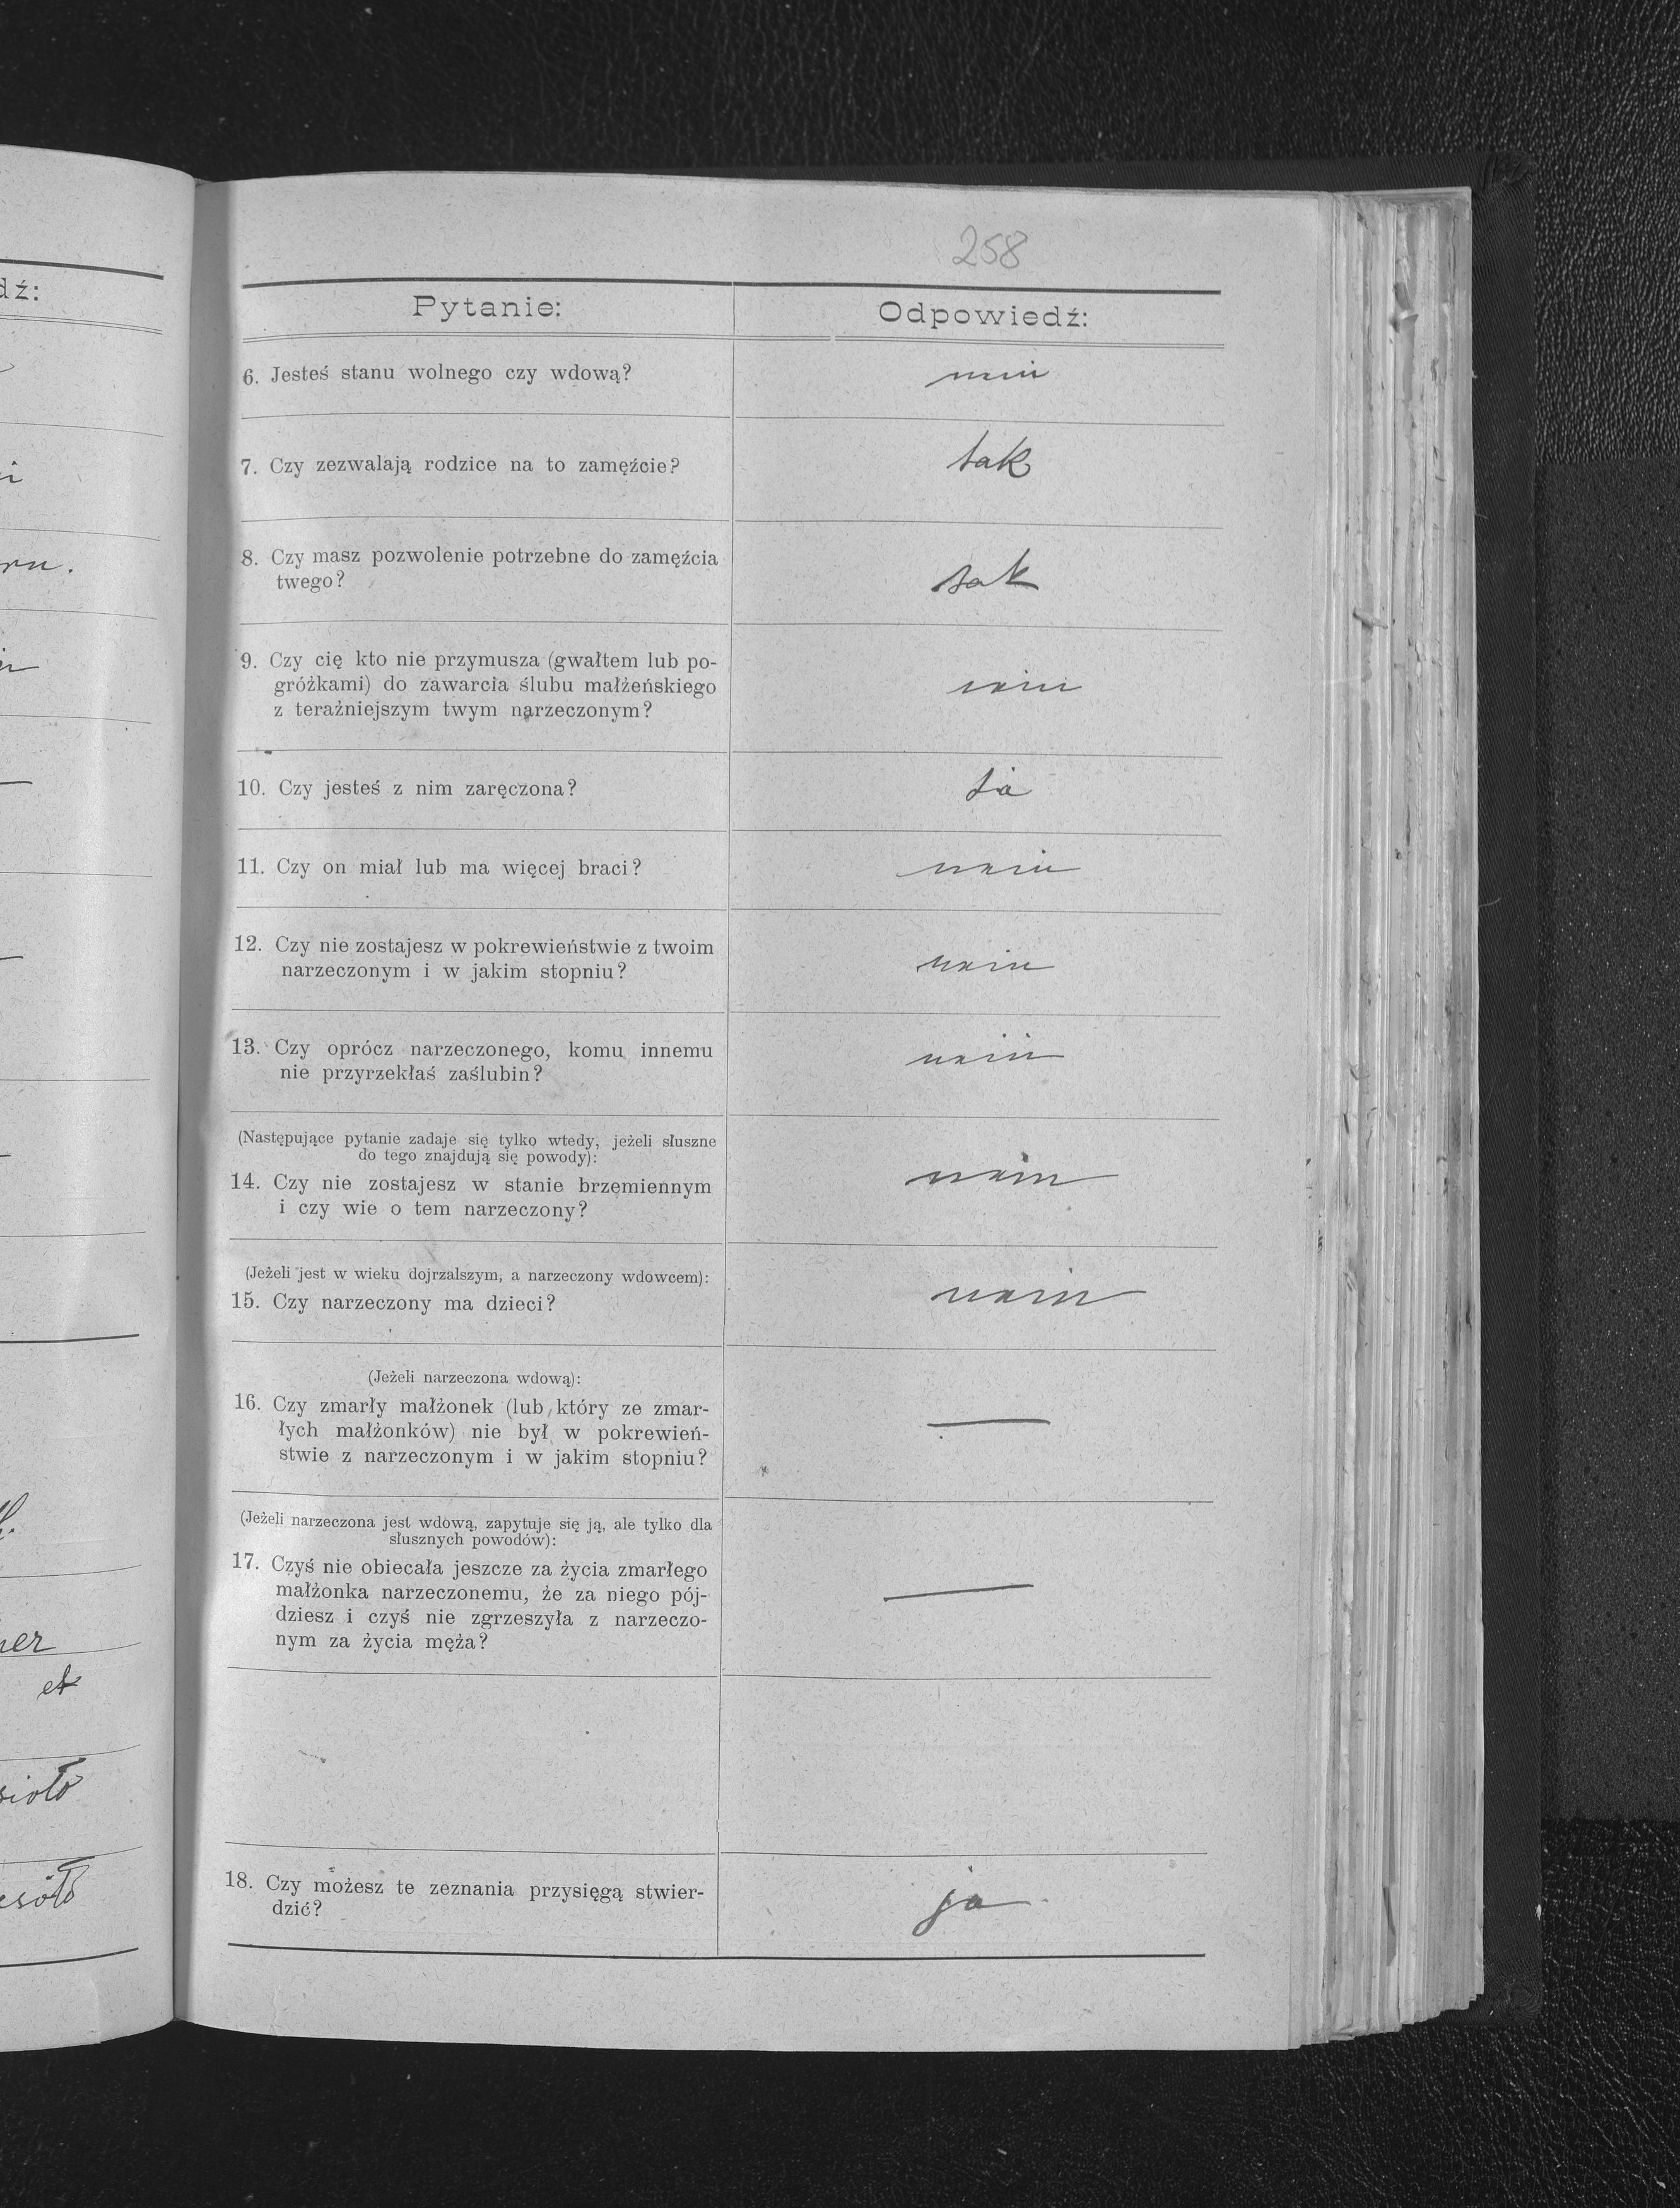 dź:
ru.
er
et
sioło
esoło
258
Pytanie: Odpowiedź:
6. Jesteś stanu wolnego czy wdową? nein
7. Czy zezwalają rodzice na to zamęźcie? tak
8. Czy masz pozwolenie potrzebne do zamęźcia tak
twego?
9. Czy cię kto nie przymusza (gwałtem lub po-
gróżkami) do zawarcia ślubu małżeńskiego nein
z teraźniejszym twym narzeczonym?
10. Czy jesteś z nim zaręczona? ja
11. Czy on miał lub ma więcej braci? nein
12. Czy nie zostajesz w pokrewieństwie z twoim nein
narzeczonym i w jakim stopniu?
13. Czy oprócz narzeczonego, komu innemu nein
nie przyrzekłaś zaślubin?
(Następujące pytanie zadaje się tylko wtedy, jeżeli słuszne
do tego znajdują się powody):
14. Czy nie zostajesz w stanie brzemiennym nein
i czy wie o tem narzeczony?
(Jeżeli jest w wieku dojrzalszym, a narzeczony wdowcem):
15. Czy narzeczony ma dzieci? nein
(Jeżeli narzeczona wdową):
16. Czy zmarły małżonek (lub który ze zmar-
łych małżonków) nie był w pokrewień- —
stwie z narzeczonym i w jakim stopniu?
(Jeżeli narzeczona jest wdową, zapytuje się ją, ale tylko dla
słusznych powodów):
17. Czyś nie obiecała jeszcze za życia zmarłego
małżonka narzeczonemu, że za niego pój- —
dziesz i czyś nie zgrzeszyła z narzeczo-
nym za życia męża?
18. Czy możesz te zeznania przysięgą stwier- ja
dzić?